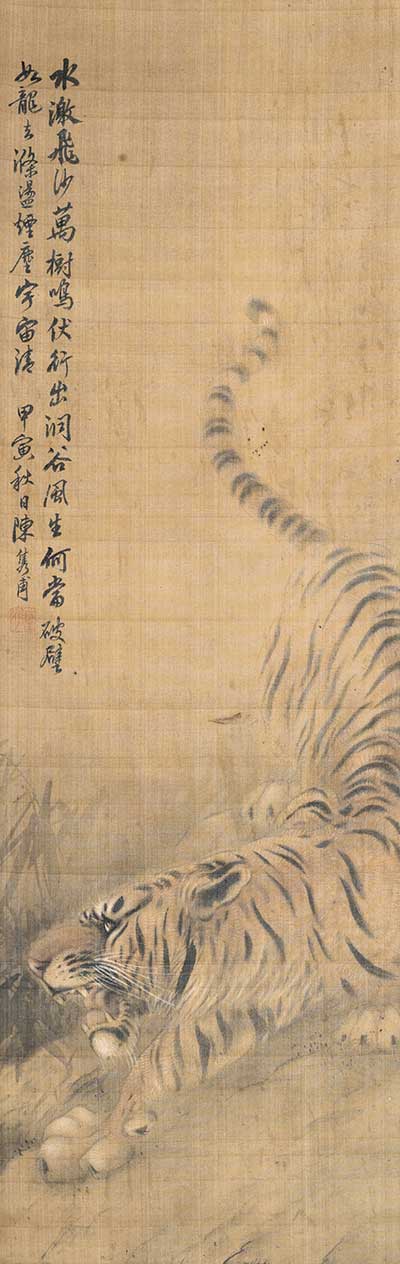 水激飛沙萬樹鳴伏行出洞谷風生何當破壁
如龍去滌盪煙塵宇宙清　甲寅秋日陳雋甫